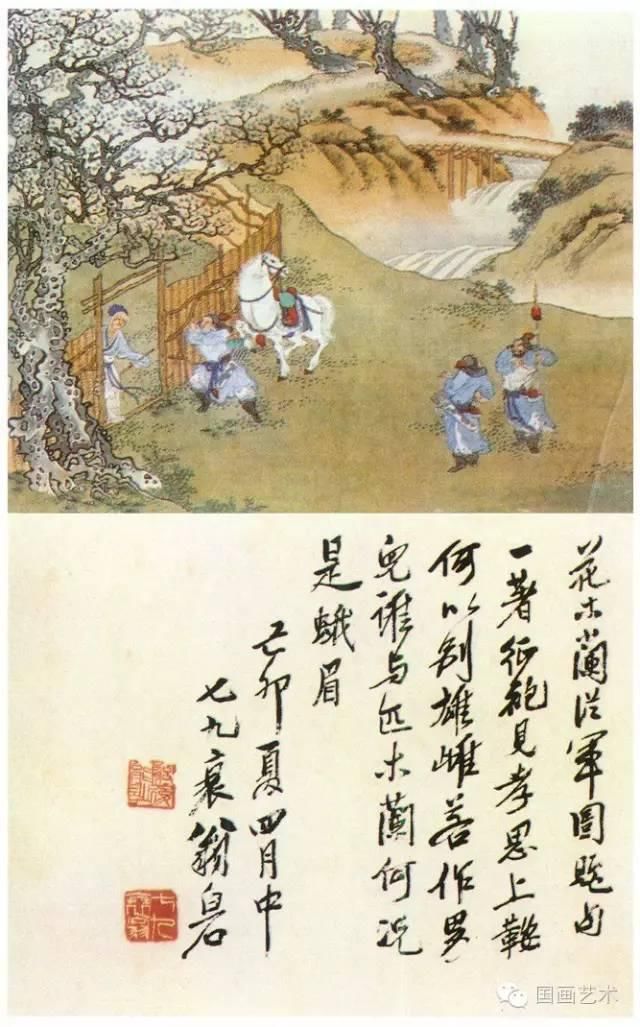 花木蘭從軍圖題句
一著征袍見孝思上鞍
何以別雄雌善作男
兒誰與匹木蘭何況
是蛾眉
己卯夏四月中
七九衰翁白石
国画艺术